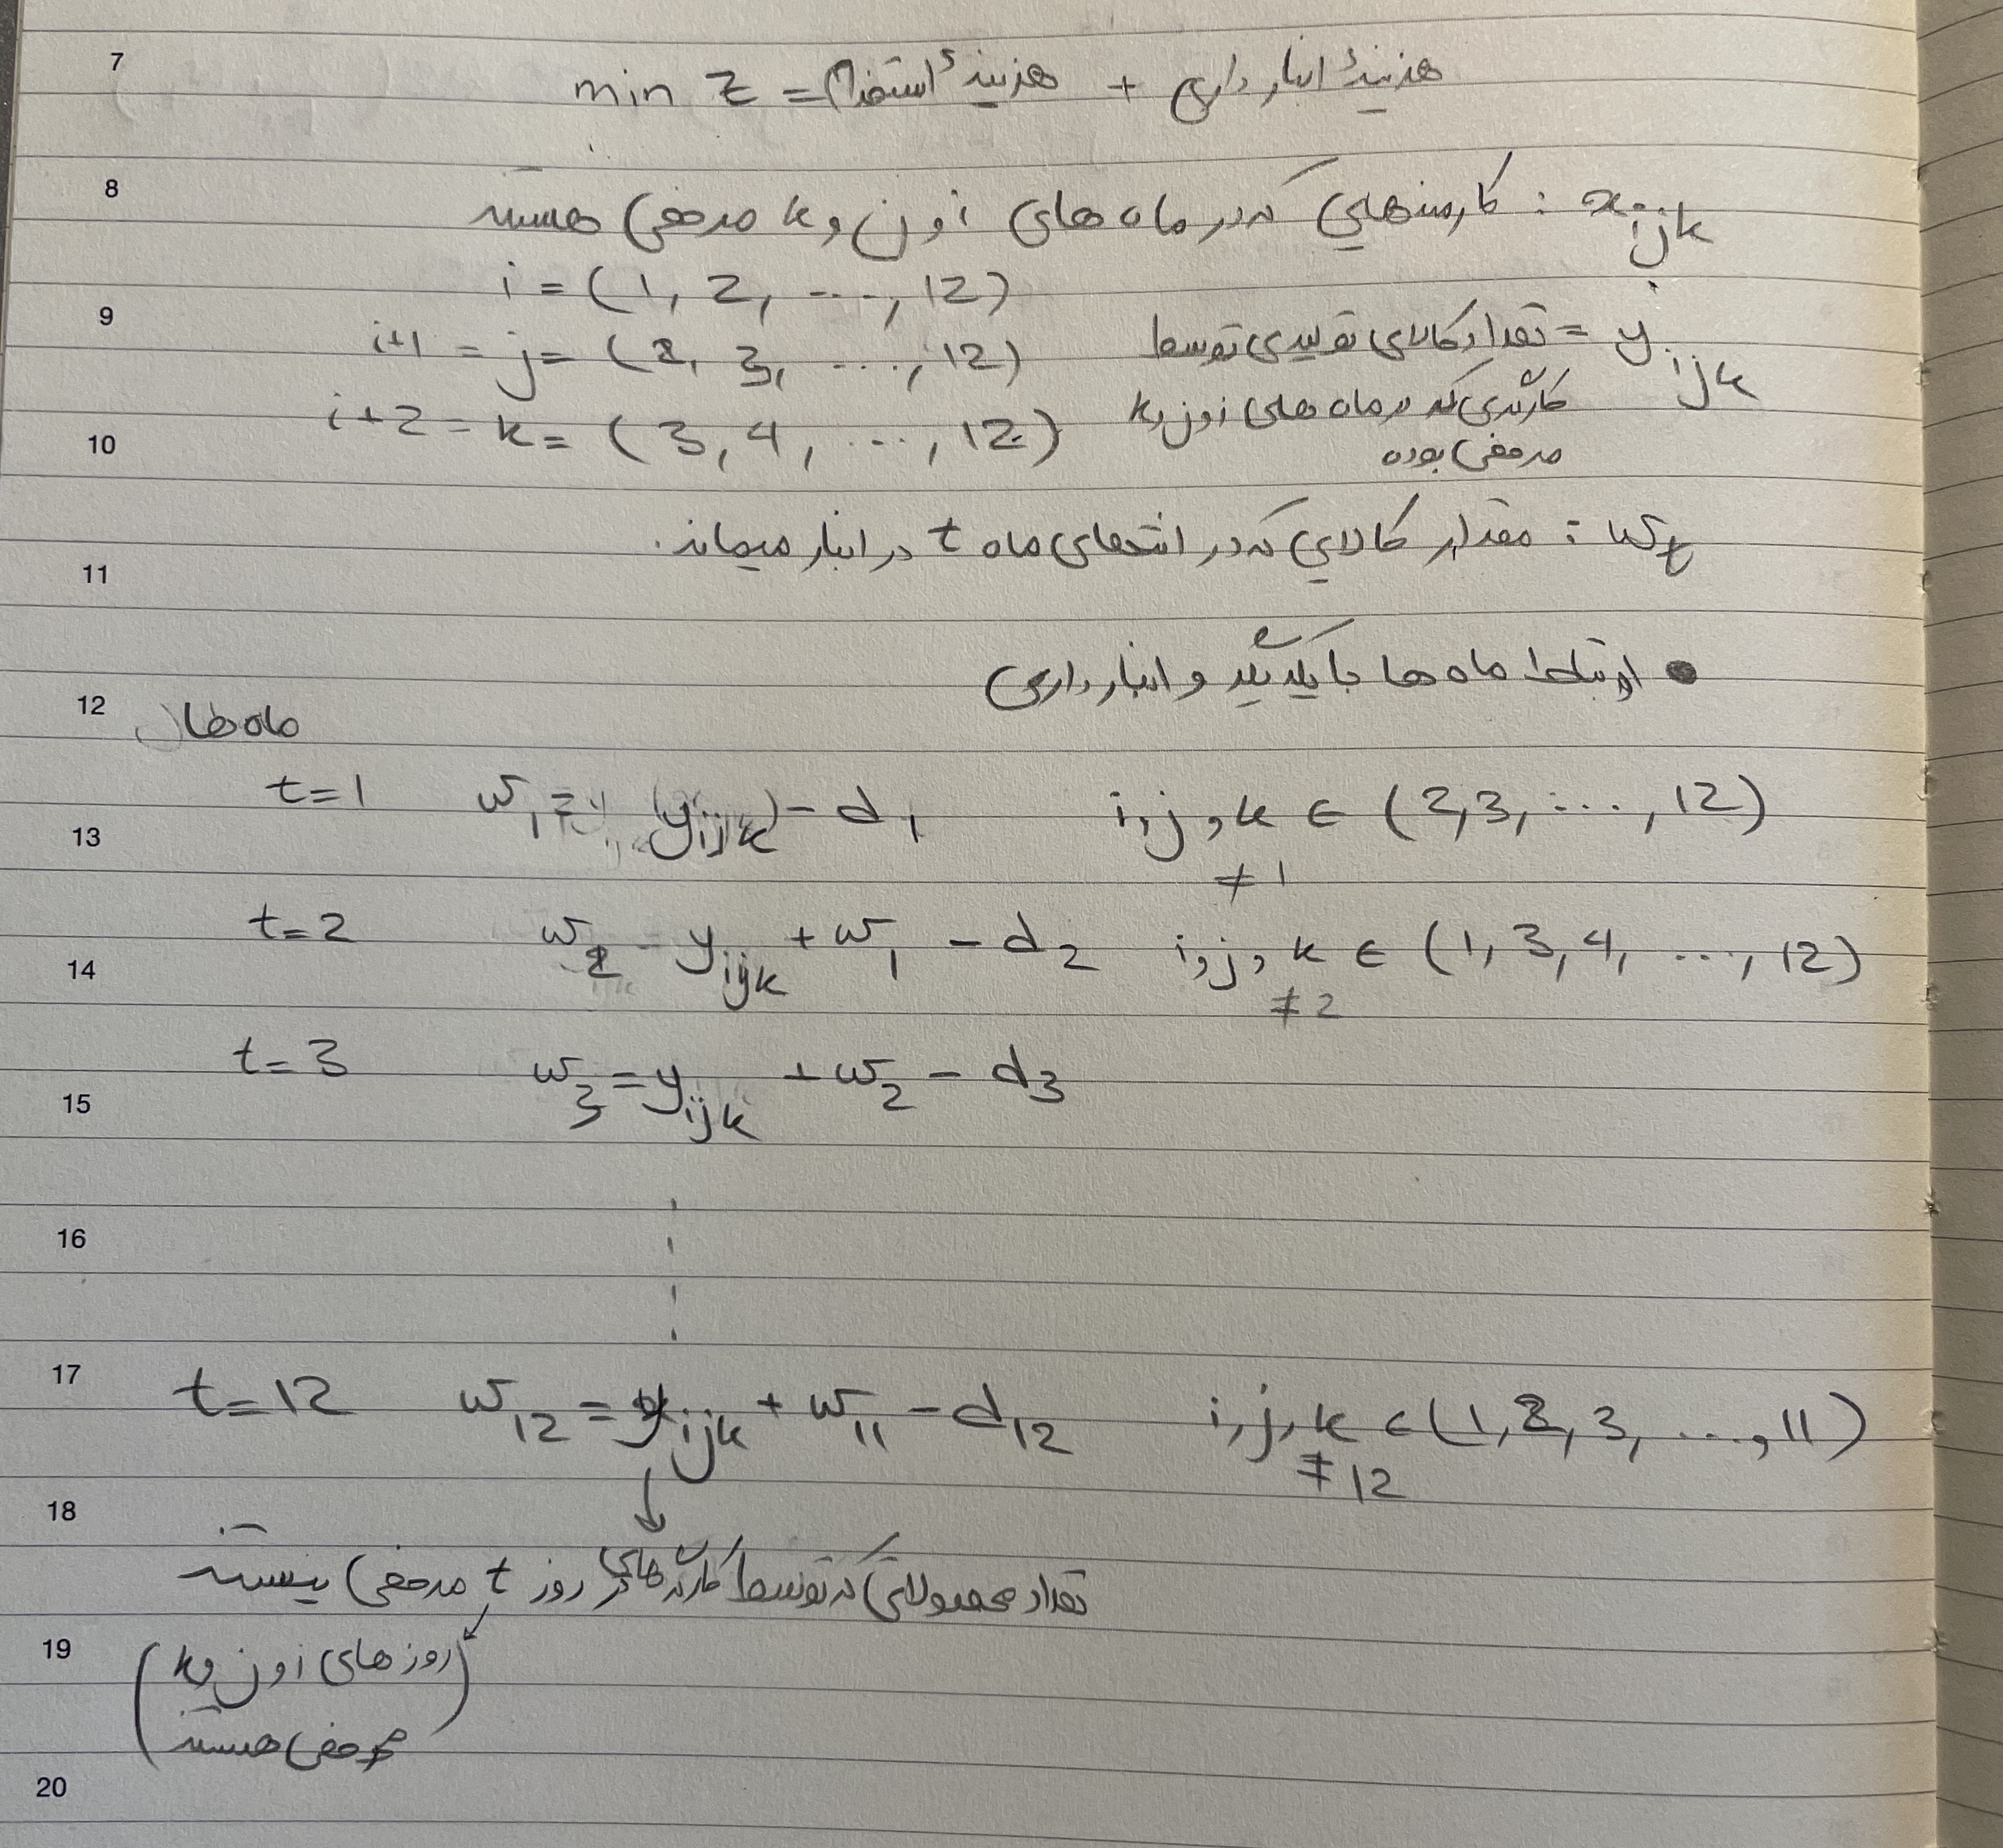 7
min Z = هزینهٔ استخدام + هزینهٔ انبارداری
8
x_ijk : کارمندهایی که در ماه های i و j و k مرخصی هستند
i = (1, 2, ..., 12)
9
i+1 = j = (2, 3, ..., 12)
y_ijk = تعداد کالای تولیدی توسط
کارگری که در ماه های i و j و k
مرخصی بوده
10
i+2 = k = (3, 4, ..., 12)
w_t : مقدار کالایی که در انتهای ماه t در انبار میماند.
11
● ارتباط ماه ها با یکدیگر و انبارداری
12
ماه
t=1 w_1 = (y_ijk) - d_1 i,j,k ∈ (2,3, ..., 12)
13
≠ 1
t=2 w_2 = y_ijk + w_1 - d_2 i,j,k ∈ (1, 3, 4, ..., 12)
14
≠ 2
t=3 w_3 = y_ijk + w_2 - d_3
15
16
17
t=12 w_12 = y_ijk + w_11 - d_12 i,j,k ∈ (1, 2, 3, ..., 11)
≠ 12
↓
18
تعداد محصولاتی که توسط کارگرهای در روز t مرخصی نیستند
19
(روزهای i و j و k
مرخصی هستند)
20